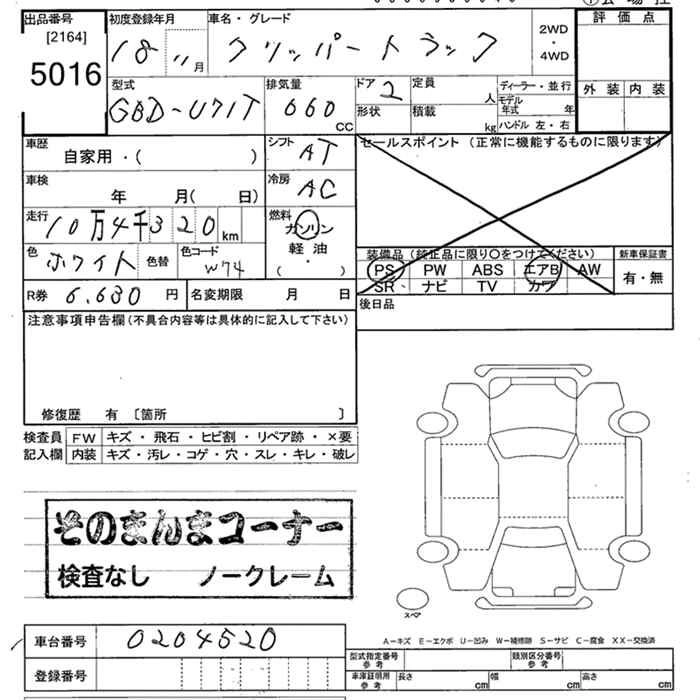 出品番号
[2164]
5016
初度登録年月
18 11月
車名・グレード
クリッパートラック
2WD
・
4WD
評価点
外装 内装
型式
GBD-U71T
排気量
660 CC
ドア 2
形状
定員 人
積載 kg
ディーラー・並行
モデル年式 年
ハンドル 左・右
車歴
自家用・( )
シフト AT
セールスポイント (正常に機能するものに限ります)
車検
年 月( 日)
冷房 AC
走行
10万4千320km
燃料
ガソリン
軽油
( ・ )
色
ホワイト
色替
色コード
W74
装備品 (純正品に限り○をつけてください)
PS PW ABS エアB AW
SR ナビ TV カワ
新車保証書
有・無
R券 6.630 円
名変期限 月 日
後日品
注意事項申告欄(不具合内容等は具体的に記入して下さい)
修復歴 有 〔箇所 〕
検査員 FW キズ・飛石・ヒビ割・リペア跡・×要
記入欄 内装 キズ・汚レ・コゲ・穴・スレ・キレ・破レ
そのまんまコーナー
検査なし ノークレーム
スペア
A−キズ E−エクボ U−凹み W−補修跡 S−サビ C−腐食 XX−交換済
車台番号 0204520
登録番号
型式指定番号 参考
類別区分番号 参考
車庫証明用 参考
長さ cm 幅 cm 高さ cm